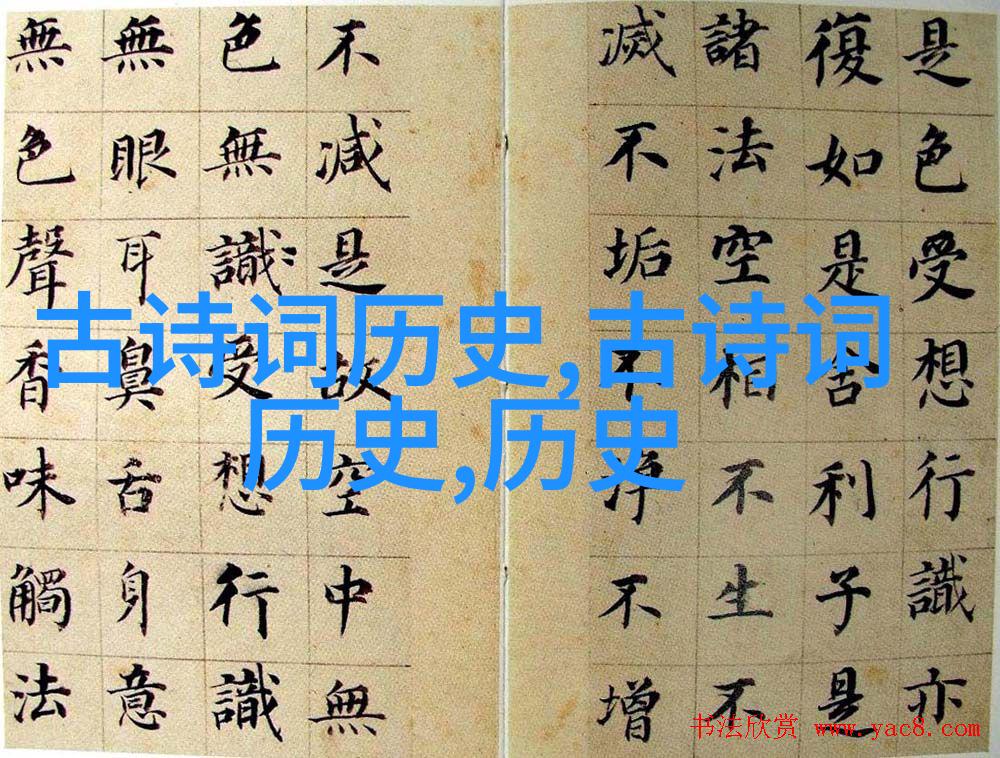 是色受想行識亦
復如是舍利子是
諸法空相不生不
滅不垢不淨不增
不減是故空中無
色無識受想行識
無眼耳鼻舌身意
無色聲香味觸法
古诗词历史,古诗词
历史,历史
书法欣赏 www.yac8.com